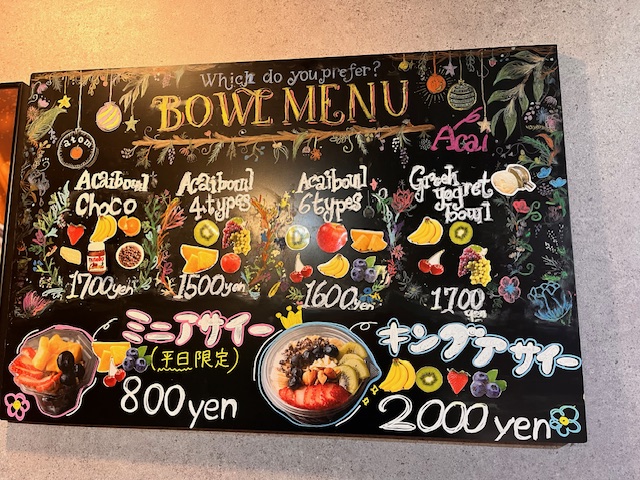 Which do you prefer?
BOWL MENU
Acai
atom
Acaibowl
Choco
1700yen
Acaibowl
4.types
1500yen
Acaibowl
6types
1600yen
Greek
yogret
bowl
1700
yen
ミニアサイー
(平日限定)
800yen
キングアサイー
2000yen